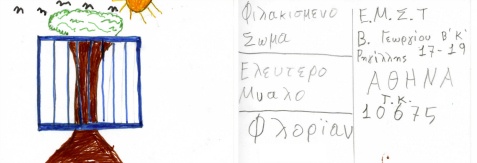 Φιλακισμενο
Σωμα
Ελευτερο
Μυαλο
Φλοριαν
Ε.Μ.Σ.Τ
Β. Γεωργιου Β' Κ'
Ρηγιλλης 17-19
ΑΘΗΝΑ
Τ.Κ.
10675